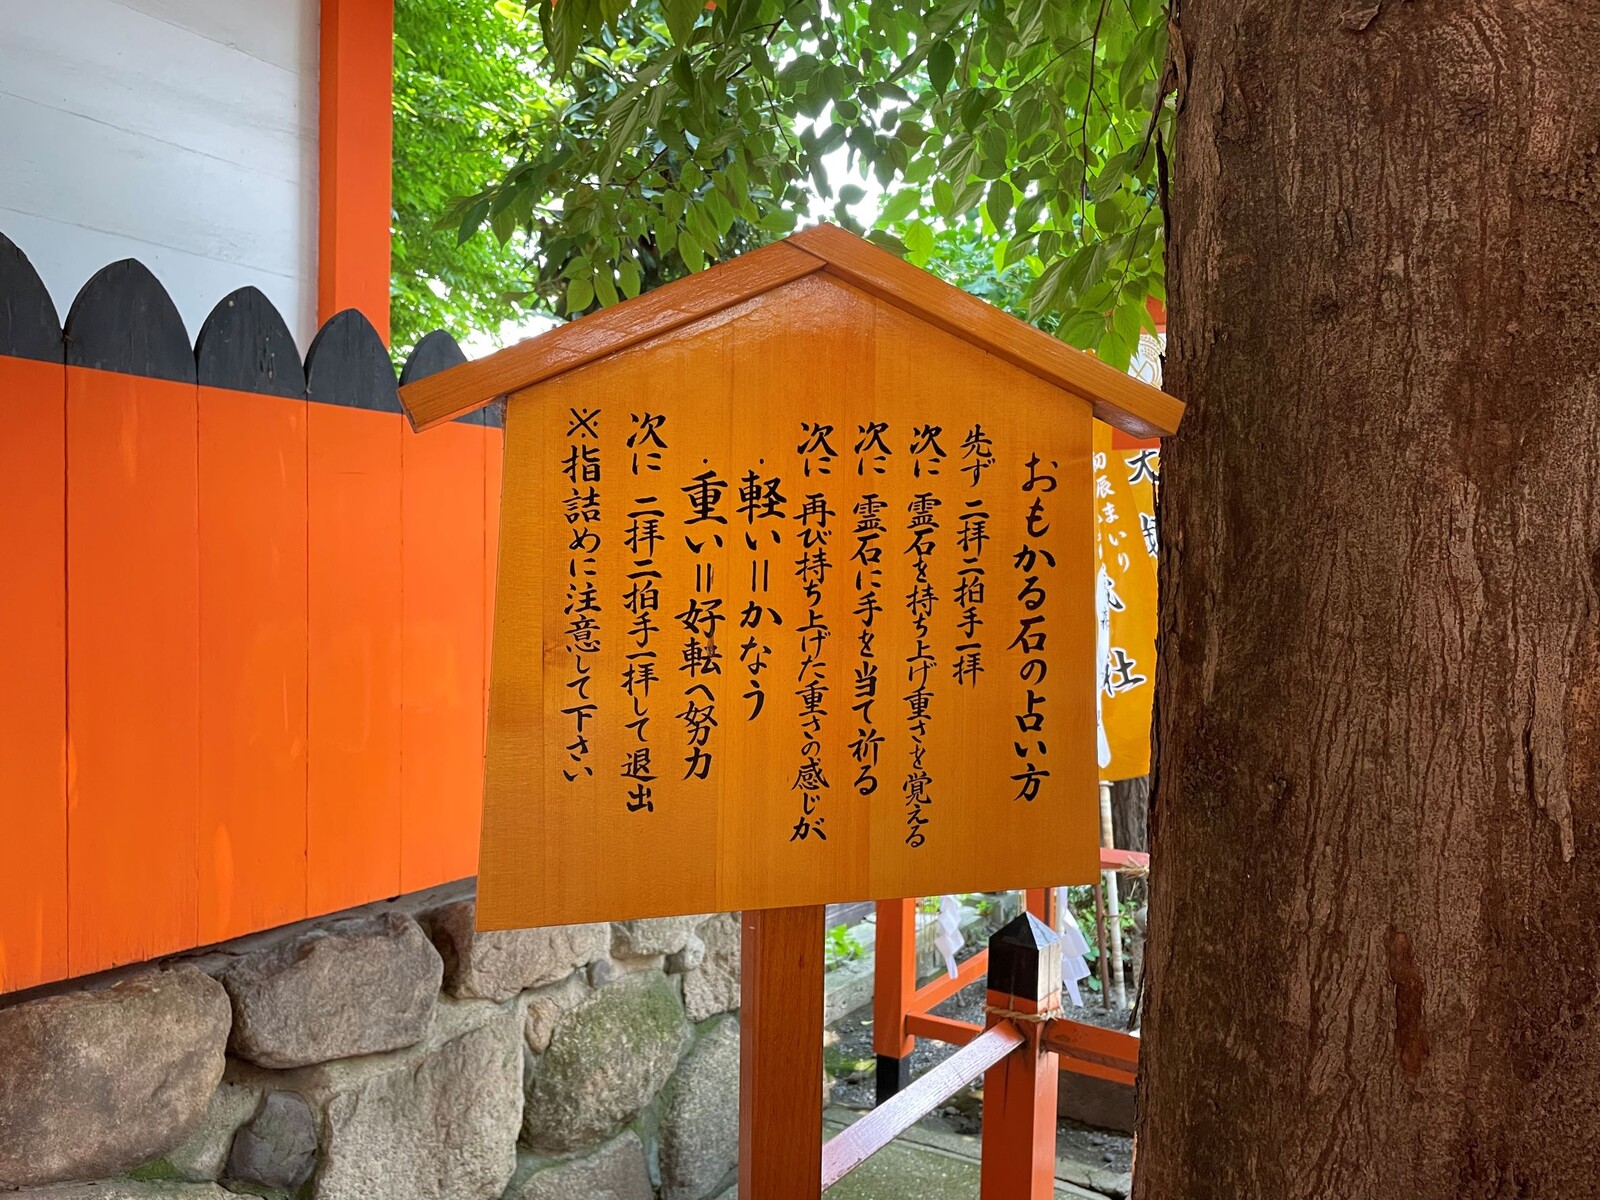 おもかる石の占い方
先ず 二拝二拍手一拝
次に 霊石を持ち上げ重さを覚える
次に 霊石に手を当て祈る
次に 再び持ち上げた重さの感じが
・軽い＝かなう
・重い＝好転へ努力
次に 二拝二拍手一拝して退出
※指詰めに注意して下さい
初辰まいり
社